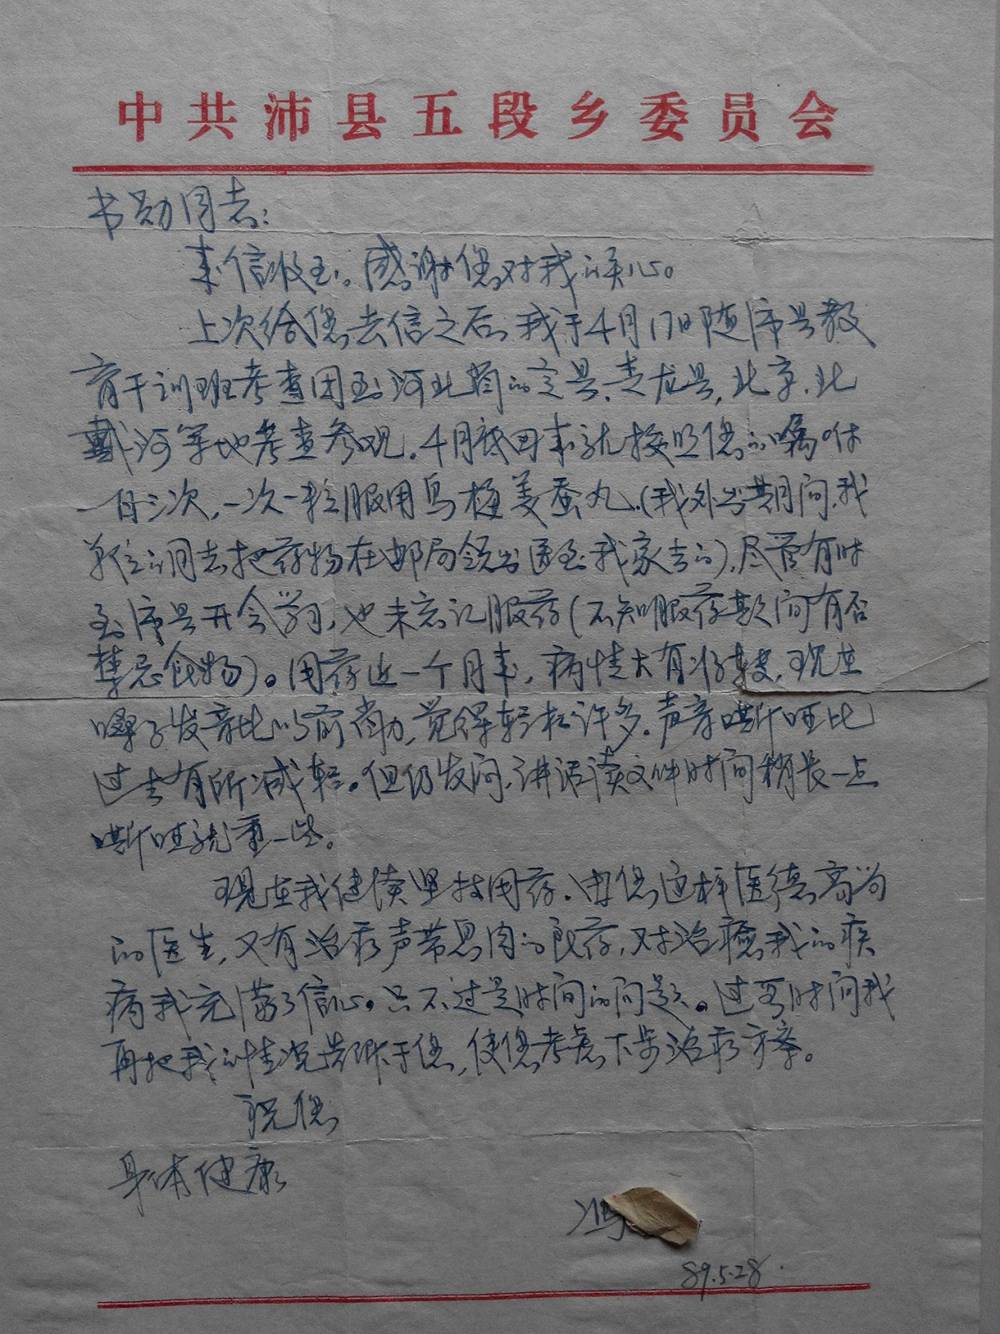 中共沛县五段乡委员会
书勋同志：
来信收到。感谢您对我的关心。
上次给您去信之后，我于4月17日随沛县教
育干训班考查团到河北省的定县、青龙县，北京、北
戴河等地考查参观。4月底回来就按照您的嘱咐
一日三次，一次一粒服用乌梅姜蚕丸（我外出期间，我
单位的同志把药物在邮局领出送到我家去的），尽管有时
到沛县开会学习，也未忘记服药（不知服药期间有否
禁忌食物）。用药近一个月来，病情大有好转，现在
嗓子发音比以前省力，觉得轻松许多。声音嘶哑比
过去有所减轻。但仍发闷，讲话读文件时间稍长一点
嘶哑就重一些。
现在我继续坚持用药。由您这样医德高尚
的医生，又有治疗声带息肉的良药，对治癒我的疾
病我充满了信心。只不过是时间的问题。过些时间我
再把我的情况告诉于您，使您考虑下步治疗方案。
祝您
身体健康
冯
89.5.28.